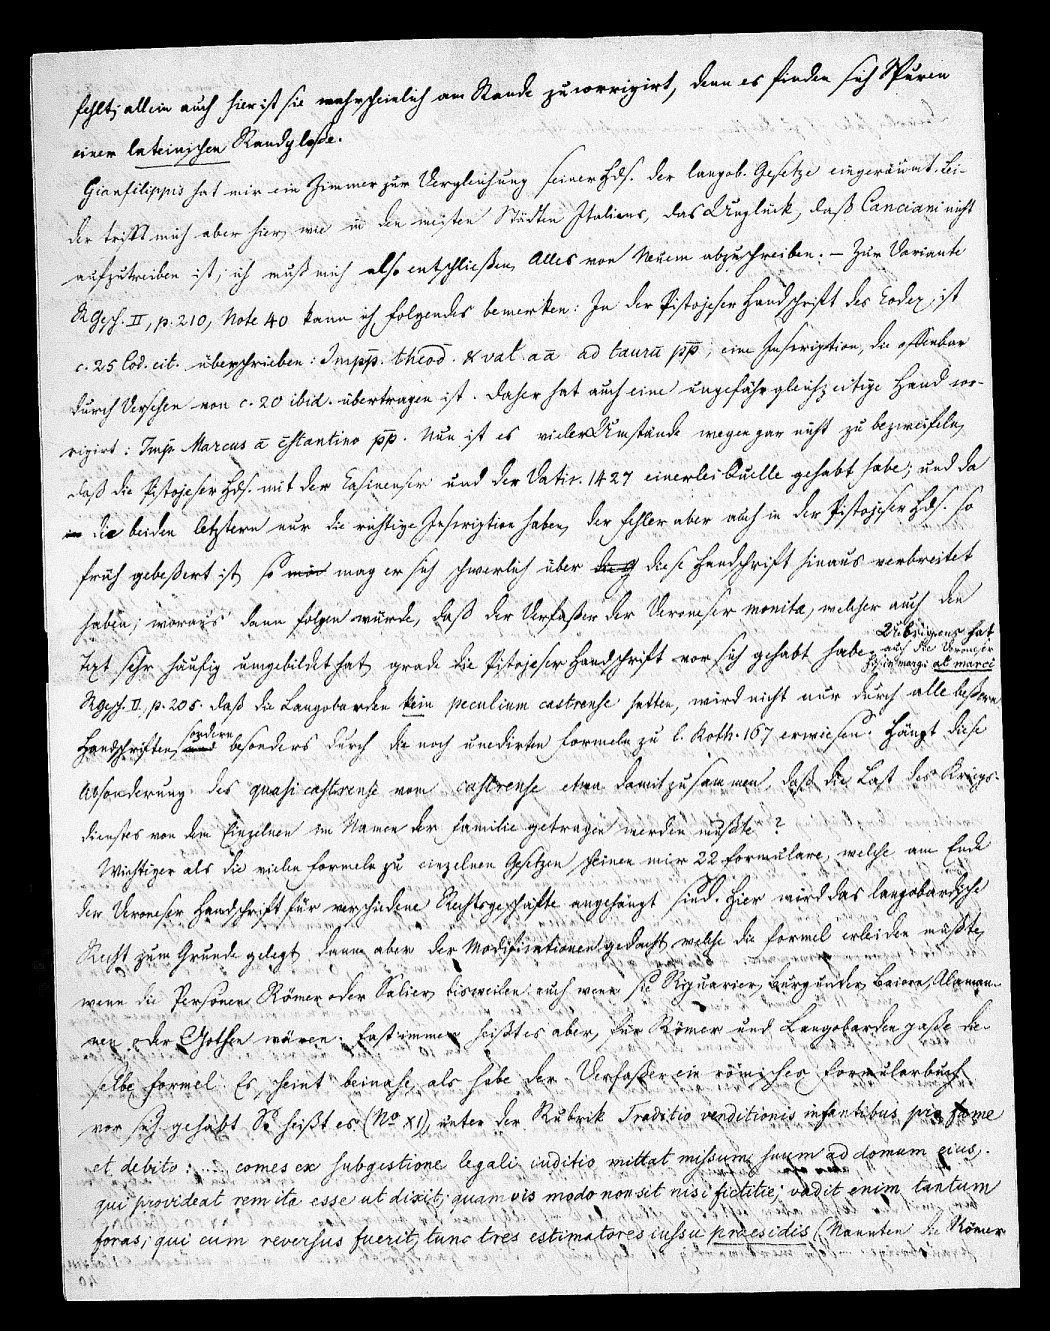 fehlt; allein auch hier ist sie wahrscheinlich am Rande zu corrigirt, denn es finden sich Spuren
einer lateinischen Randglosse.
Gianfilippis hat mir ein Zimmer zur Vergleichung seiner Hds. der langob. Gesetze eingeräumt. Lei-
der trifft mich aber hier, wie in den meisten Städten Italiens, das Unglück, daß Canciani nicht
aufzutreiben ist; ich muß mich also entschließen, Alles von Neuem abzuschreiben. – Zur Variante
RGesch. II, p. 210, Note 40 kann ich folgendes bemerken: In der Pistojeser Handschrift des Codex, ist
c. 25 Cod. cit. überschrieben: Impp̄. theod̄. & val. aā ad taurū pp̄; eine Inscription, die offenbar
durch Versehen von c. 20 ibid. übertragen ist. Daher hat auch eine ungefähr gleichzeitige Hand cor-
rigirt: Imp̄ Marcus ā c̄stantino pp̄. Nun ist es vieler Umstände wegen gar nicht zu bezweifeln,
daß die Pistojeser Hds. mit der Casinenser und der Vatic. 1427 einerlei Quelle gehabt habe; und da
die beiden letztern nur die richtige Inscription haben, der Fehler aber auch in der Pistojeser Hds. so
früh gebeßert ist, so mag er sich schwerlich über diese Handschrift hinaus verbreitet
haben; woraus dann folgen würde, daß der Verfaßer der Veroneser monita, welcher auch den
Text sehr häufig umgebildet hat, grade die Pistojeser Handschrift vor sich gehabt habe. Uebrigens hat
auch die Veroneser
Hs. in marg: al marci
RGesch. II, p. 205. daß die Langobarden kein peculium castrense hatten, wird nicht nur durch alle beßern
Handschriften, sondern besonders durch die noch unedirten Formeln zu l. Roth. 167 erwiesen. Hängt diese
Absonderung des quasi castrense vom castrense etwa damit zusammen, daß die Last des Kriegs-
dienstes von dem Einzelnen im Namen der Familie getragen werden mußte?
Wichtiger als die vielen Formeln zu einzelnen Gesetzen scheinen mir 22 Formulare, welche am Ende
der Veroneser Handschrift für verschiedene Rechtsgeschäfte angehängt sind. Hier wird das langobardische
Recht zum Grunde gelegt, dann aber der Modificationen gedacht, welche die Formel erleiden müßte,
wenn die Personen Römer oder Salier, bisweilen auch wenn sie Ripuarier, Burgunder, Baiern, Alaman-
nen oder Gothen wären. Fast immer heißt es aber, für Römer und Langobarden paße die-
selbe Formel. Es scheint beinahe, als habe der Verfaßer ein römisches Formularbuch
vor sich gehabt. So heißt es (No XI), unter der Rubrik Traditio venditionis infantibus pro fame
et debito: .... comes ex subgestione legali iuditio mittat missum suum ad domum eius,
qui provideat rem ita esse ut dixit, quamvis modo non sit nisi fictitie, vadit enim tantum
foras; qui cum reversus fuerit, tunc tres estimatores iussu praesidis (Nannten die Römer